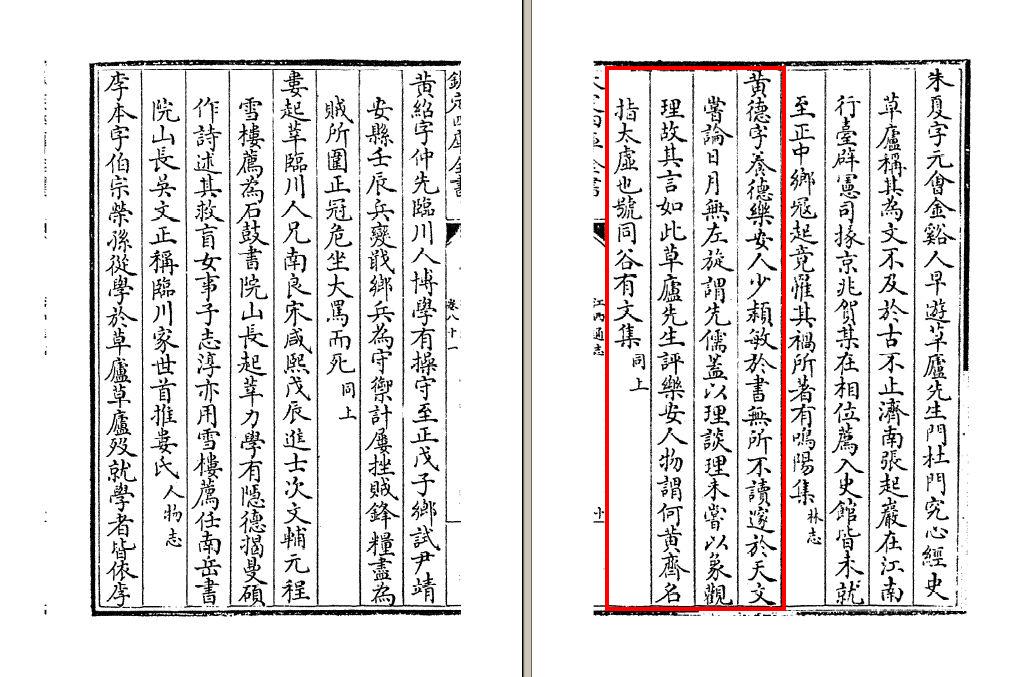 朱夏字元會金谿人早遊草廬先生門杜門究心經史
草廬稱其為文不及於古不止濟南張起巖在江南
行臺辟憲司掾京兆賀某在相位薦入史館皆未就
至正中鄉冦起竟懼其禍所著有鳴陽集林志
黄德字養德樂安人少頴敏於書無所不讀邃於天文
嘗論日月無左旋謂先儒蓋以理談理未嘗以象觀
理故其言如此草廬先生評樂安人物謂何黄齊名
指太虚也號同谷有文集同上
江西通志
十
欽定四庫全書
卷八十一
黄紹字仲先臨川人博學有操守至正戊子鄉試尹靖
安縣壬辰兵變戢鄉兵為守禦計屢挫賊鋒糧盡為
賊所圍正冠危坐大罵而死同上
婁起莘臨川人兄南良宋咸熙戊辰進士次文輔元程
雪樓薦為石鼓書院山長起莘力學有隱德揭曼碩
作詩述其救盲女事子志淳亦用雪樓薦任南岳書
院山長吳文正稱臨川家世首推婁氏人物志
李本字伯宗榮孫從學於草廬草廬歿就學者皆依李